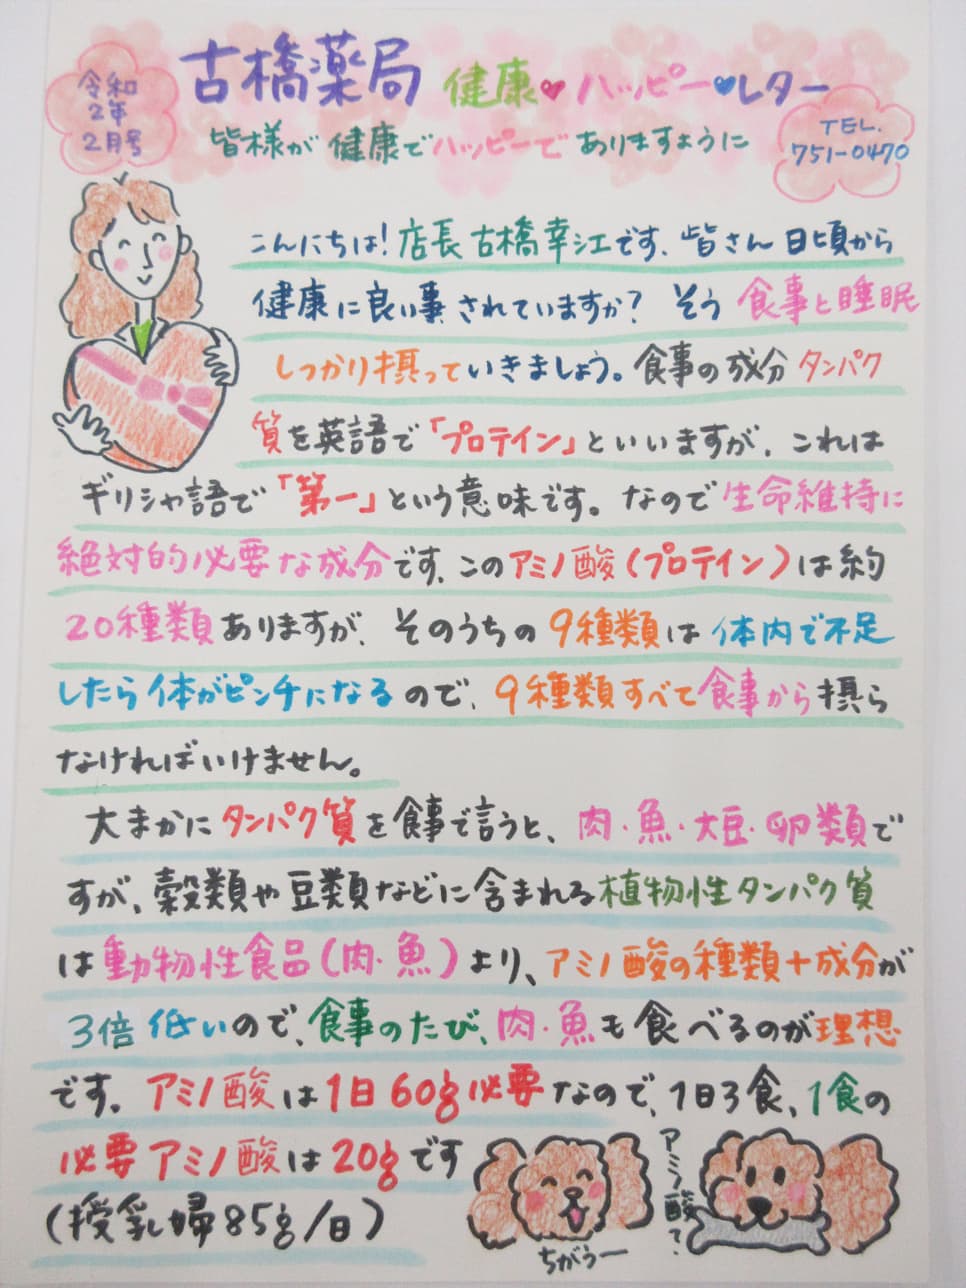 令和
2年
2月号
古橋薬局 健康♥ハッピー♥レター
皆様が健康でハッピーでありますように
TEL.
751-0470
こんにちは!店長古橋幸江です、皆さん日頃から
健康に良い事されていますか? そう食事と睡眠
しっかり摂っていきましょう。食事の成分タンパク
質を英語で「プロテイン」といいますが、これは
ギリシャ語で「第一」という意味です。なので生命維持に
絶対的必要な成分です、このアミノ酸(プロテイン)は約
20種類ありますが、そのうちの9種類は体内で不足
したら体がピンチになるので、9種類すべて食事から摂ら
なければいけません。
大まかにタンパク質を食事で言うと、肉・魚・大豆・卵類で
すが、穀類や豆類などに含まれる植物性タンパク質
は動物性食品(肉・魚)より、アミノ酸の種類+成分が
3倍低いので、食事のたび、肉・魚も食べるのが理想
です。アミノ酸は1日60g必要なので、1日3食、1食の
必要アミノ酸は20gです
(授乳婦85g/日)
アミノ酸て?
ちがうー